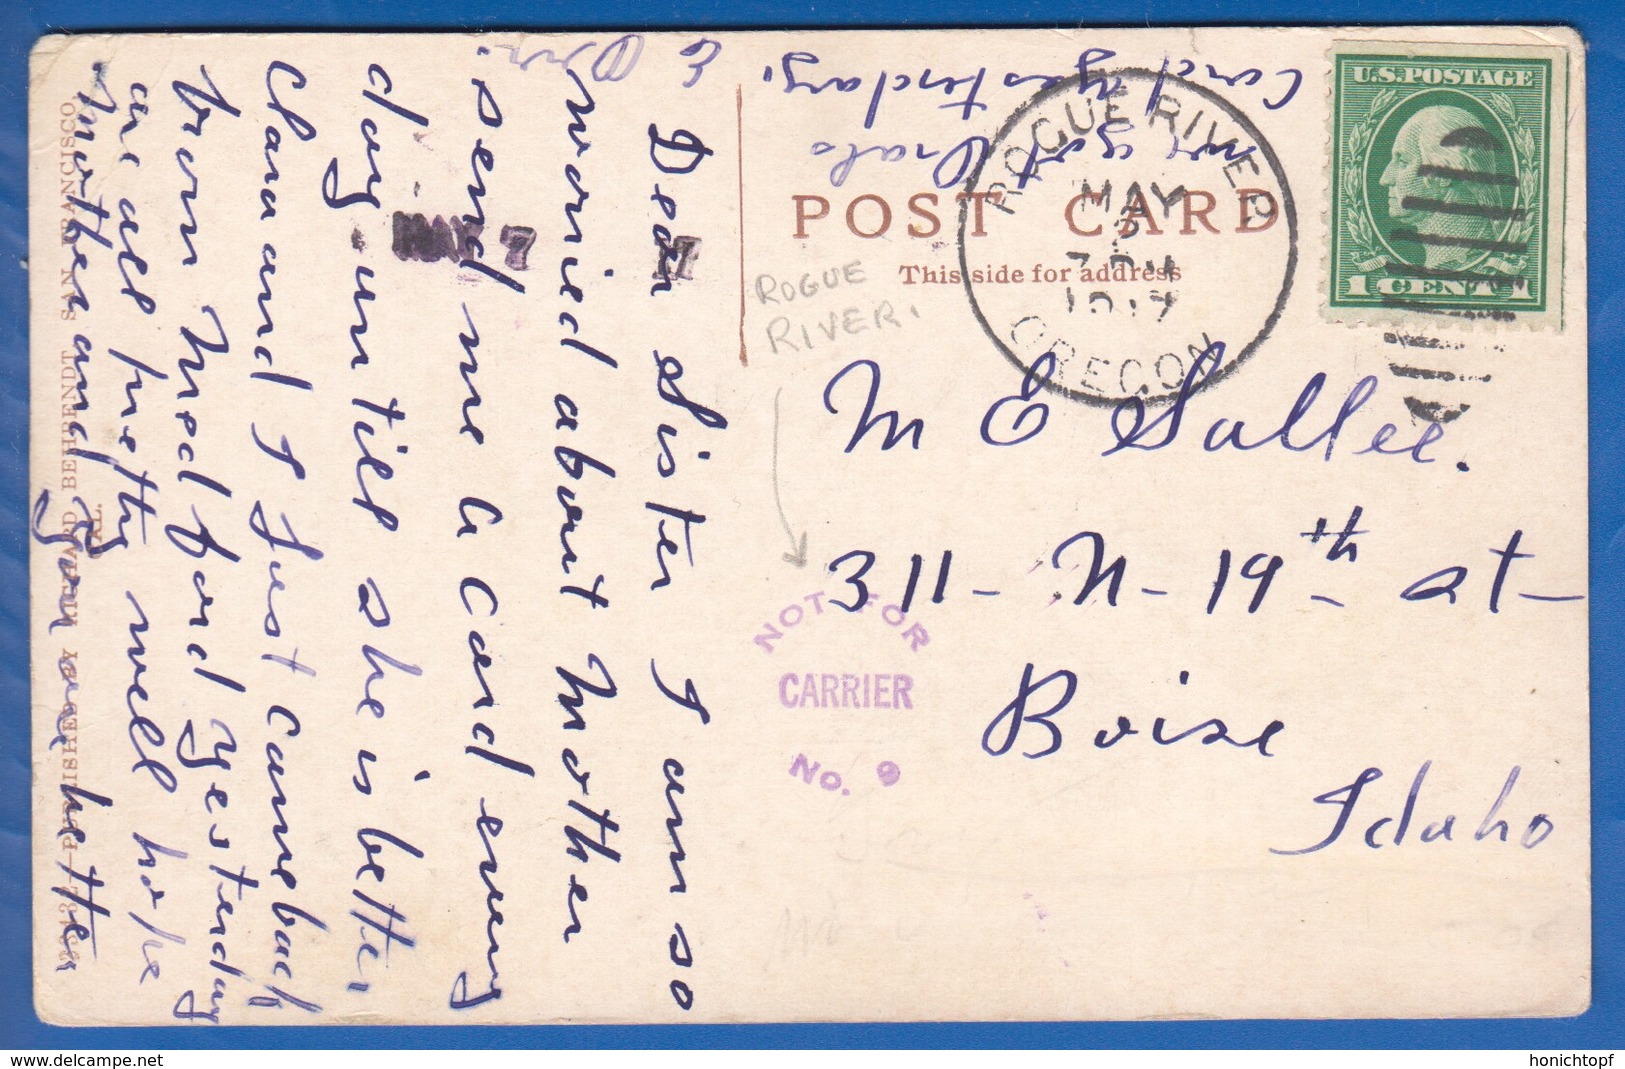 Dear Sister I am so
woried about Mother
. send me a Card every
day untill she is better
Clara and I Just Came back
from Medford yesterday
are all pretty well hope
Mother and you are better
we got Orals
Card yesterday.
POST CARD
This side for address
ROGUE RIVER
MAY
OREGON
U.S. POSTAGE
1 CENT 1
MAY 7
ROGUE
RIVER.
M E Sallee.
311 - N - 19th st -
Boise
Idaho
NOT FOR
CARRIER
No. 9
PUBLISHED BY RICHARD BEHRENDT SAN FRANCISCO
CAL.
honichtopf